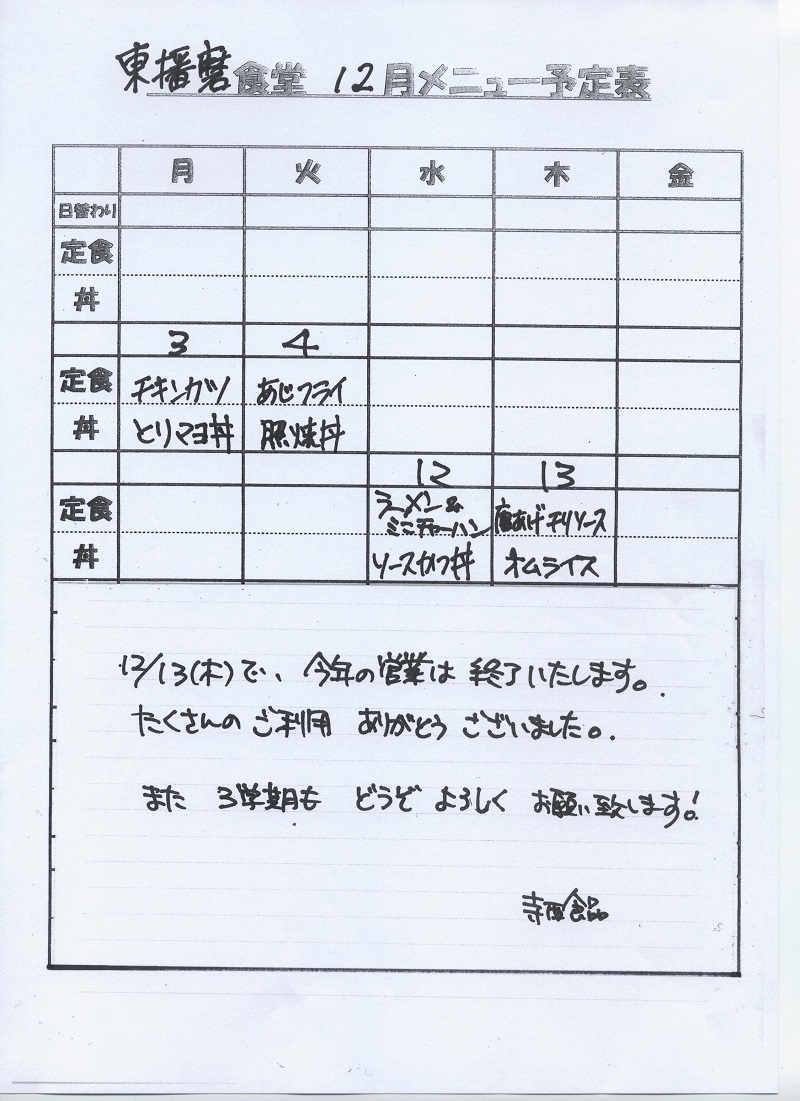 東播磨食堂 12月メニュー予定表
月 火 水 木 金
日替わり
定食
丼
3 4
定食 チキンカツ あじフライ
丼 とりマヨ丼 照焼丼
12 13
定食 ラーメン&ミニチャーハン 唐あげチリソース
丼 ソースカツ丼 オムライス
12/13(木)で、今年の営業は終了いたします。
たくさんのご利用 ありがとうございました。
また 3学期も どうぞ よろしく お願い致します!
寺西食品